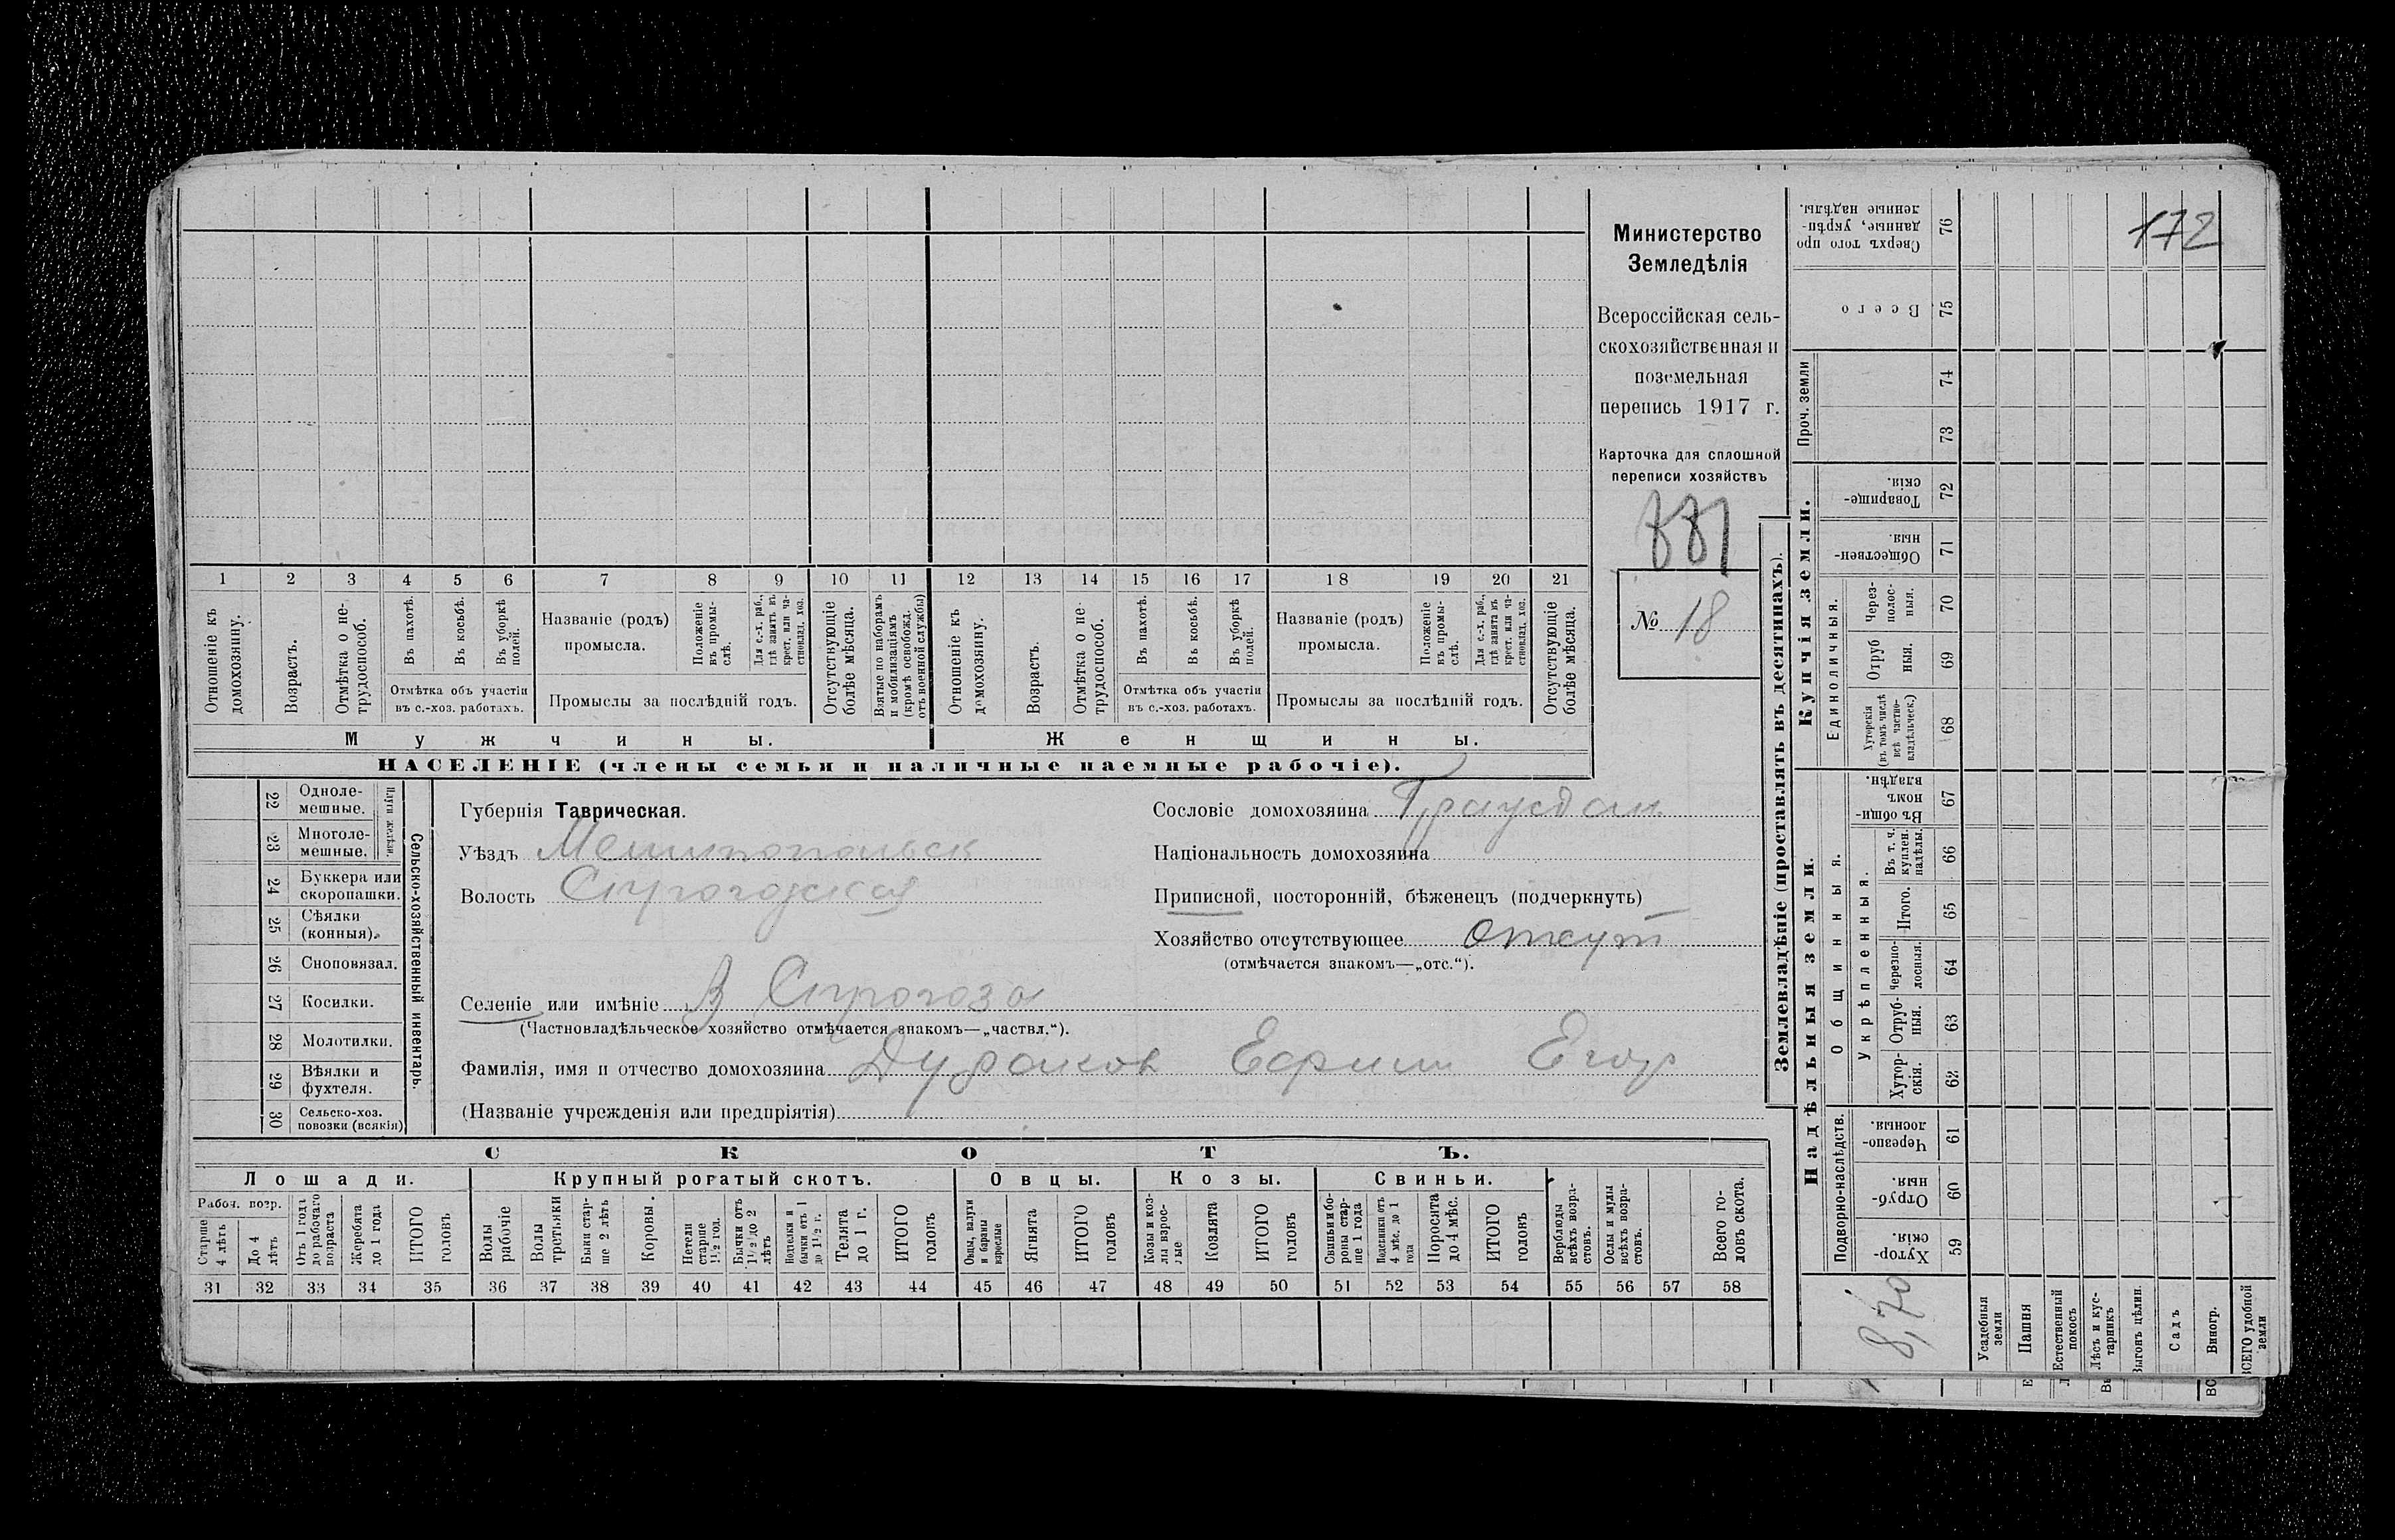 Министерство
Земледѣлія
Всероссійская сель-
скохозяйственная и
поземельная
перепись 1917 г.
Карточка для сплошной
переписи хозяйствъ
№ 18
172
1 2 3 4 5 6 7 8 9 10 11 12 13 14 15 16 17 18 19 20 21
Отношеніе къ домохозяину.
Возрастъ.
Отмѣтка о не-трудоспособ.
Въ пахотѣ.
Въ косьбѣ.
Въ уборкѣ полей.
Отмѣтка объ участіи
въ с.-хоз. работахъ.
Названіе (родъ)
промысла.
Положеніе въ промы-слѣ.
Для с.-х. раб., гдѣ занятъ въ крест. или ча-стновлад. хоз.
Промыслы за послѣдній годъ.
Отсутствующіе болѣе мѣсяца.
Взятые по наборамъ и мобилизаціямъ (кромѣ освобожд. отъ военной службы)
Отношеніе къ домохозяину.
Возрастъ.
Отмѣтка о не-трудоспособ.
Въ пахотѣ.
Въ косьбѣ.
Въ уборкѣ полей.
Отмѣтка объ участіи
въ с.-хоз. работахъ.
Названіе (родъ)
промысла.
Положеніе въ промы-слѣ.
Для с.-х. раб., гдѣ занята въ крест. или ча-стновлад. хоз.
Промыслы за послѣдній годъ.
Отсутствующіе болѣе мѣсяца.
Мужчины. Женщины.
НАСЕЛЕНІЕ (члены семьи и наличные наемные рабочіе).
22 Одноле-мешные.
23 Многоле-мешные.
Плуги желѣзн.
24 Буккера или скоропашки.
25 Сѣялки (конныя).
26 Сноповязал.
27 Косилки.
28 Молотилки.
29 Вѣялки и фухтеля.
30 Сельско-хоз. повозки (всякія)
Сельско-хозяйственный инвентарь.
Губернія Таврическая.
Уѣздъ Мелитопольск
Волость
Сословіе домохозяина
Національность домохозяина
Приписной, посторонній, бѣженецъ (подчеркнуть)
Хозяйство отсутствующее отсут
(отмѣчается знакомъ—„отс.“).
Селеніе или имѣніе В Сирогоза
(Частновладѣльческое хозяйство отмѣчается знакомъ—„частвл.“).
Фамилія, имя и отчество домохозяина Дураков Ефим Егор
(Названіе учрежденія или предпріятія)
СКОТЪ.
Лошади. Крупный рогатый скотъ. Овцы. Козы. Свиньи.
Рабоч. возр.
Старше 4 лѣтъ
До 4 лѣтъ
Отъ 1 года до рабочаго возраста
Жеребята до 1 года
ИТОГО головъ
Волы рабочіе
Волы третьяки
Быки стар-ше 2 лѣтъ
Коровы.
Нетели старше 1½ год.
Бычки отъ 1½ до 2 лѣтъ
Подтелки и бычки отъ 1 до 1½ г.
Телята до 1 г.
ИТОГО головъ
Овцы, валухи и бараны взрослые
Ягнята
ИТОГО головъ
Козы и коз-лы взрос-лые
Козлята
ИТОГО головъ
Свиньи и бо-ровы стар-ше 1 года
Подсвинки отъ 4 мѣс. до 1 года
Поросята до 4 мѣс.
ИТОГО головъ
Верблюды всѣхъ возра-стовъ.
Ослы и мулы всѣхъ возра-стовъ.
Всего го-ловъ скота.
31 32 33 34 35 36 37 38 39 40 41 42 43 44 45 46 47 48 49 50 51 52 53 54 55 56 57 58
Землевладѣніе (проставлять въ десятинахъ).
Надѣльныя земли. Купчія земли.
Подворно-наслѣдств.
Общинныя.
Укрѣпленныя.
Единоличныя.
Проч. земли
Хутор-скія. 59
Отруб-ныя. 60
Черезпо-лосныя. 61
Хутор-скія. 62
Отруб-ныя. 63
Черезпо-лосныя. 64
Итого. 65
Въ т. ч. куплен. надѣлы. 66
Въ общи-номъ владѣн. 67
Хуторскія (въ томъ числѣ всѣ частно-владѣльческ.) 68
Отруб ныя. 69
Через-полос-ныя. 70
Обществен-ныя. 71
Товарище-скія. 72
73
74
Всего 75
Сверхъ того про данные, укрѣп-ленные надѣлы. 76
8,70
Усадебныя земли
Пашня
Естественный покосъ
Лѣсъ и кус-тарникъ
Выгонъ цѣлин.
Садъ
Виногр.
ВСЕГО удобной земли